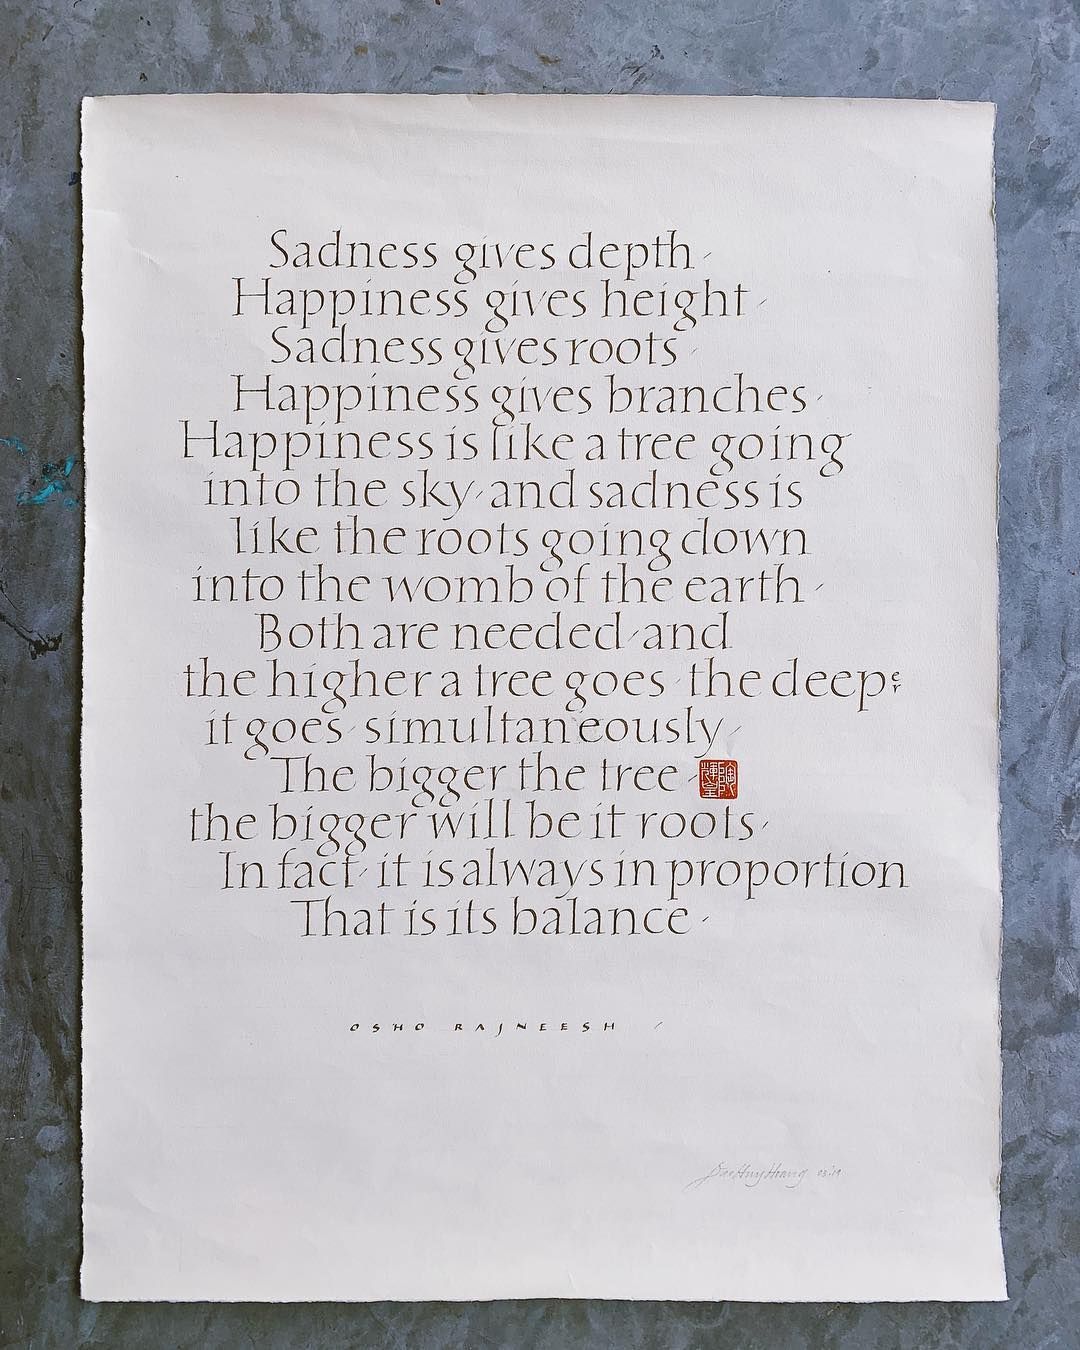 Sadness gives depth
Happiness gives height
Sadness gives roots
Happiness gives branches
Happiness is like a tree going
into the sky, and sadness is
like the roots going down
into the womb of the earth
Both are needed, and
the higher a tree goes, the deeper
it goes, simultaneously
The bigger the tree
the bigger will be it roots
In fact, it is always in proportion
That is its balance
OSHO RAJNEESH
03.19